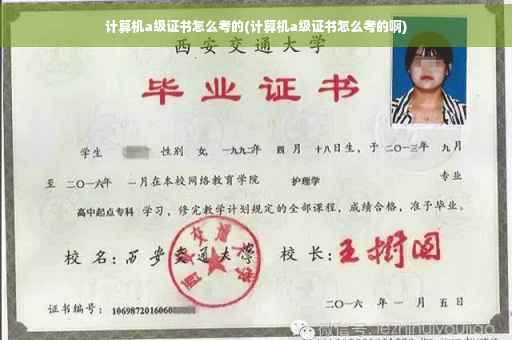 计算机a级证书怎么考的(计算机a级证书怎么考的啊)
西安交通大学
毕业证书
学生 性别 女, 一九九二年 四 月 十八日生, 于 二〇一三年 九月
至 二〇一六年 一月在本校网络教育学院 护理学 专业
高中起点专科 学习, 修完教学计划规定的全部课程, 成绩合格, 准予毕业。
校 名: 西安交通大学 校 长: 王树国
西安交通大学
证书编号: 1069872016060
二〇一六 年 一 月 五 日
微信号: jezhinuiyoujiao